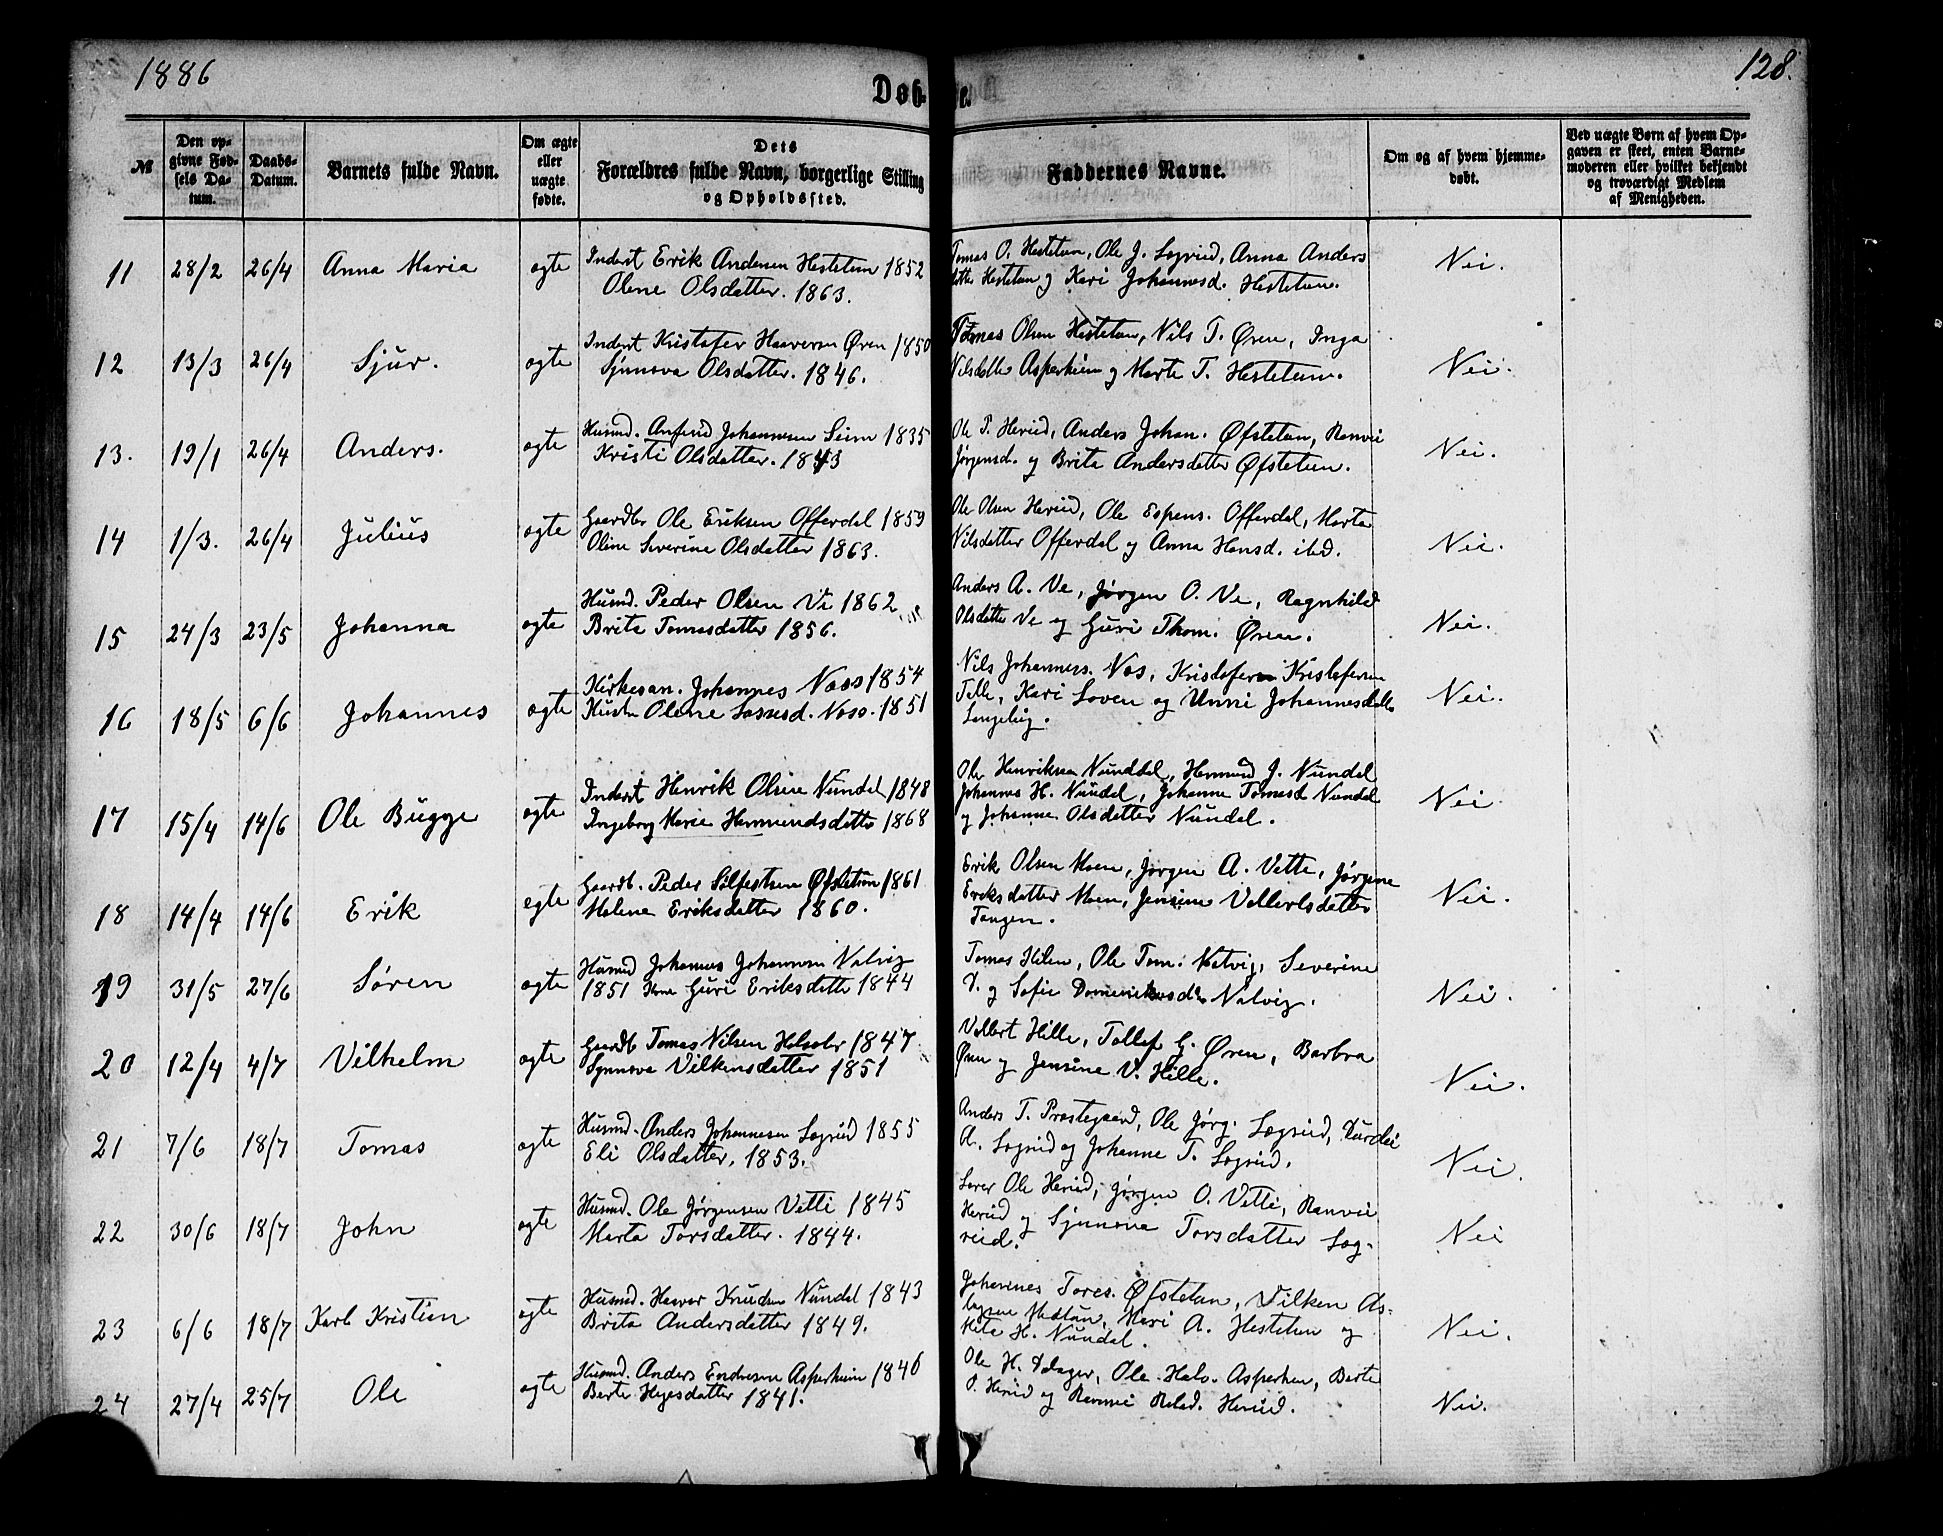 1886
128.
Døb- e.
№
Den op-
givne Fød-
sels Da-
tum.
Daabs-
Datum.
Barnets fulde Navn.
Om ægte
eller
uægte
fødte.
Dets
Forældres fulde Navn, borgerlige Stilling
og Opholdssted.
Faddernes Navne.
Om og af hvem hjemme-
døbt.
Ved uægte Børn af hvem Op-
gaven er skeet, enten Barne-
moderen eller hvilket bekjendt
og troværdigt Medlem
af Menigheden.
11 28/2 26/4 Anna Maria ægte
Inderst Erik Andersen Hestetun 1852
Olene Olsdatter. 1863.
Tomas O. Hestetun, Ole J. Sogrud, Anna Anders
datter Hestetun og Kari Johannesd. Hestetun.
Nei.
12 13/3 26/4 Sjur. ægte
Inderst Kristofer Haaversen Øren 1850
Synnøva Olsdatter. 1846.
Tomas Olsen Hestetun, Nils T. Øren, Inga
Nilsdatter Asperheim og Marte T. Hestetun.
Nei.
13. 19/1 26/4 Anders. ægte
Husmd. Anfind Johannesen Seim 1835
Kristi Olsdatter. 1843
Ole P. Herud, Anders Johan. Øfstetun, Ranvei
Jørgensd. og Brita Andersdatter Øfstetun.
Nei.
14 1/3. 26/4 Julius ægte
Gaardbr Ole Eriksen Offerdal 1859
Oline Severine Olsdatter 1863.
Ole Olsen Herud, Ole Espens. Offerdal, Marta
Nilsdatter Offerdal og Anna Hansd. ibd.
Nei.
15 24/3 23/5 Johanna ægte
Husmd. Peder Olsen Ve 1862
Brita Tomasdatter 1856.
Anders A. Ve, Jørgen O. Ve, Ragnhild
Olsdatter Ve og Guri Thom. Øren.
Nei.
16 18/5 6/6 Johannes ægte
Kirkesan. Johannes Naas 1854
Hustru Olene Lassesd. Naas. 1851
Nils Johannes. Nas, Kristofer Kristofersen
Telle, Kari Loven og Unni Johannesdatter
Nei.
17 15/4 14/6 Ole Bugge ægte
Inderst Henrik Olsen Nundal 1848
Ingeborg Marie Hermundsdatter 1868
Ole Henriksen Nundal, Hermund J. Nundal
Johannes H. Nundal, Johanne Tomasd Nundal
og Johanne Olsdatter Nundal.
Nei.
18 14/4 14/6 Erik ægte
Gaardb. Peder Sølfestsen Øfstetun 1861
Malena Eriksdatter 1860.
Erik Olsen Moen, Jørgen A. Vette, Jørgine
Eriksdatter Moen, Jensine
Tangen.
Nei.
19 31/5 27/6 Søren ægte
Husmd Johannes Johannesen Natvig
1851 Kone Guri Eriksdatter 1844
Tomas Hilen, Ole Tom. Natvig, Severine
D. og Sofie Natvig.
Nei.
20 12/4 4/7 Vilhelm ægte
Gaardb Tomas Nilsen 1847
Synnøva Vilkinsdatter 1851
Hille, Tollef G. Øren, Barbra
Øren og Jensine V. Hille.
Nei.
21 7/6 18/7 Tomas ægte
Husmd. Anders Johannesen Sogrud 1855
Eli Olsdatter, 1853.
Anders T. Prestegaard, Ole Jørg. Sogrud, Durdei
A. Sogrud og Johanne T. Sogrud.
Nei.
22 30/6 18/7 John ægte
Husmd. Ole Jørgensen Vetti 1845
Marta Torsdatter. 1844.
Lærer Ole Herud, Jørgen O. Vetti, Ranvei
Herud og Synnøve Torsdatter Sog-
rud.
Nei
23 6/6 18/7 Karl Kristian ægte
Husmd. Haavar Knudsen Nundal 1843
Brita Andersdatter 1849.
Johannes Tores. Øfstetun, Vilken As-
Mari A. Hestetun og
H. Nundal.
Nei.
24 27/4 25/7 Ole ægte
Husmd. Anders Endresen Asperheim 1846
Berte 1841.
Ole H. Dalager, Ole Halv. Asperheim, Berte
O. Herud og Ranvei Herud.
Nei.